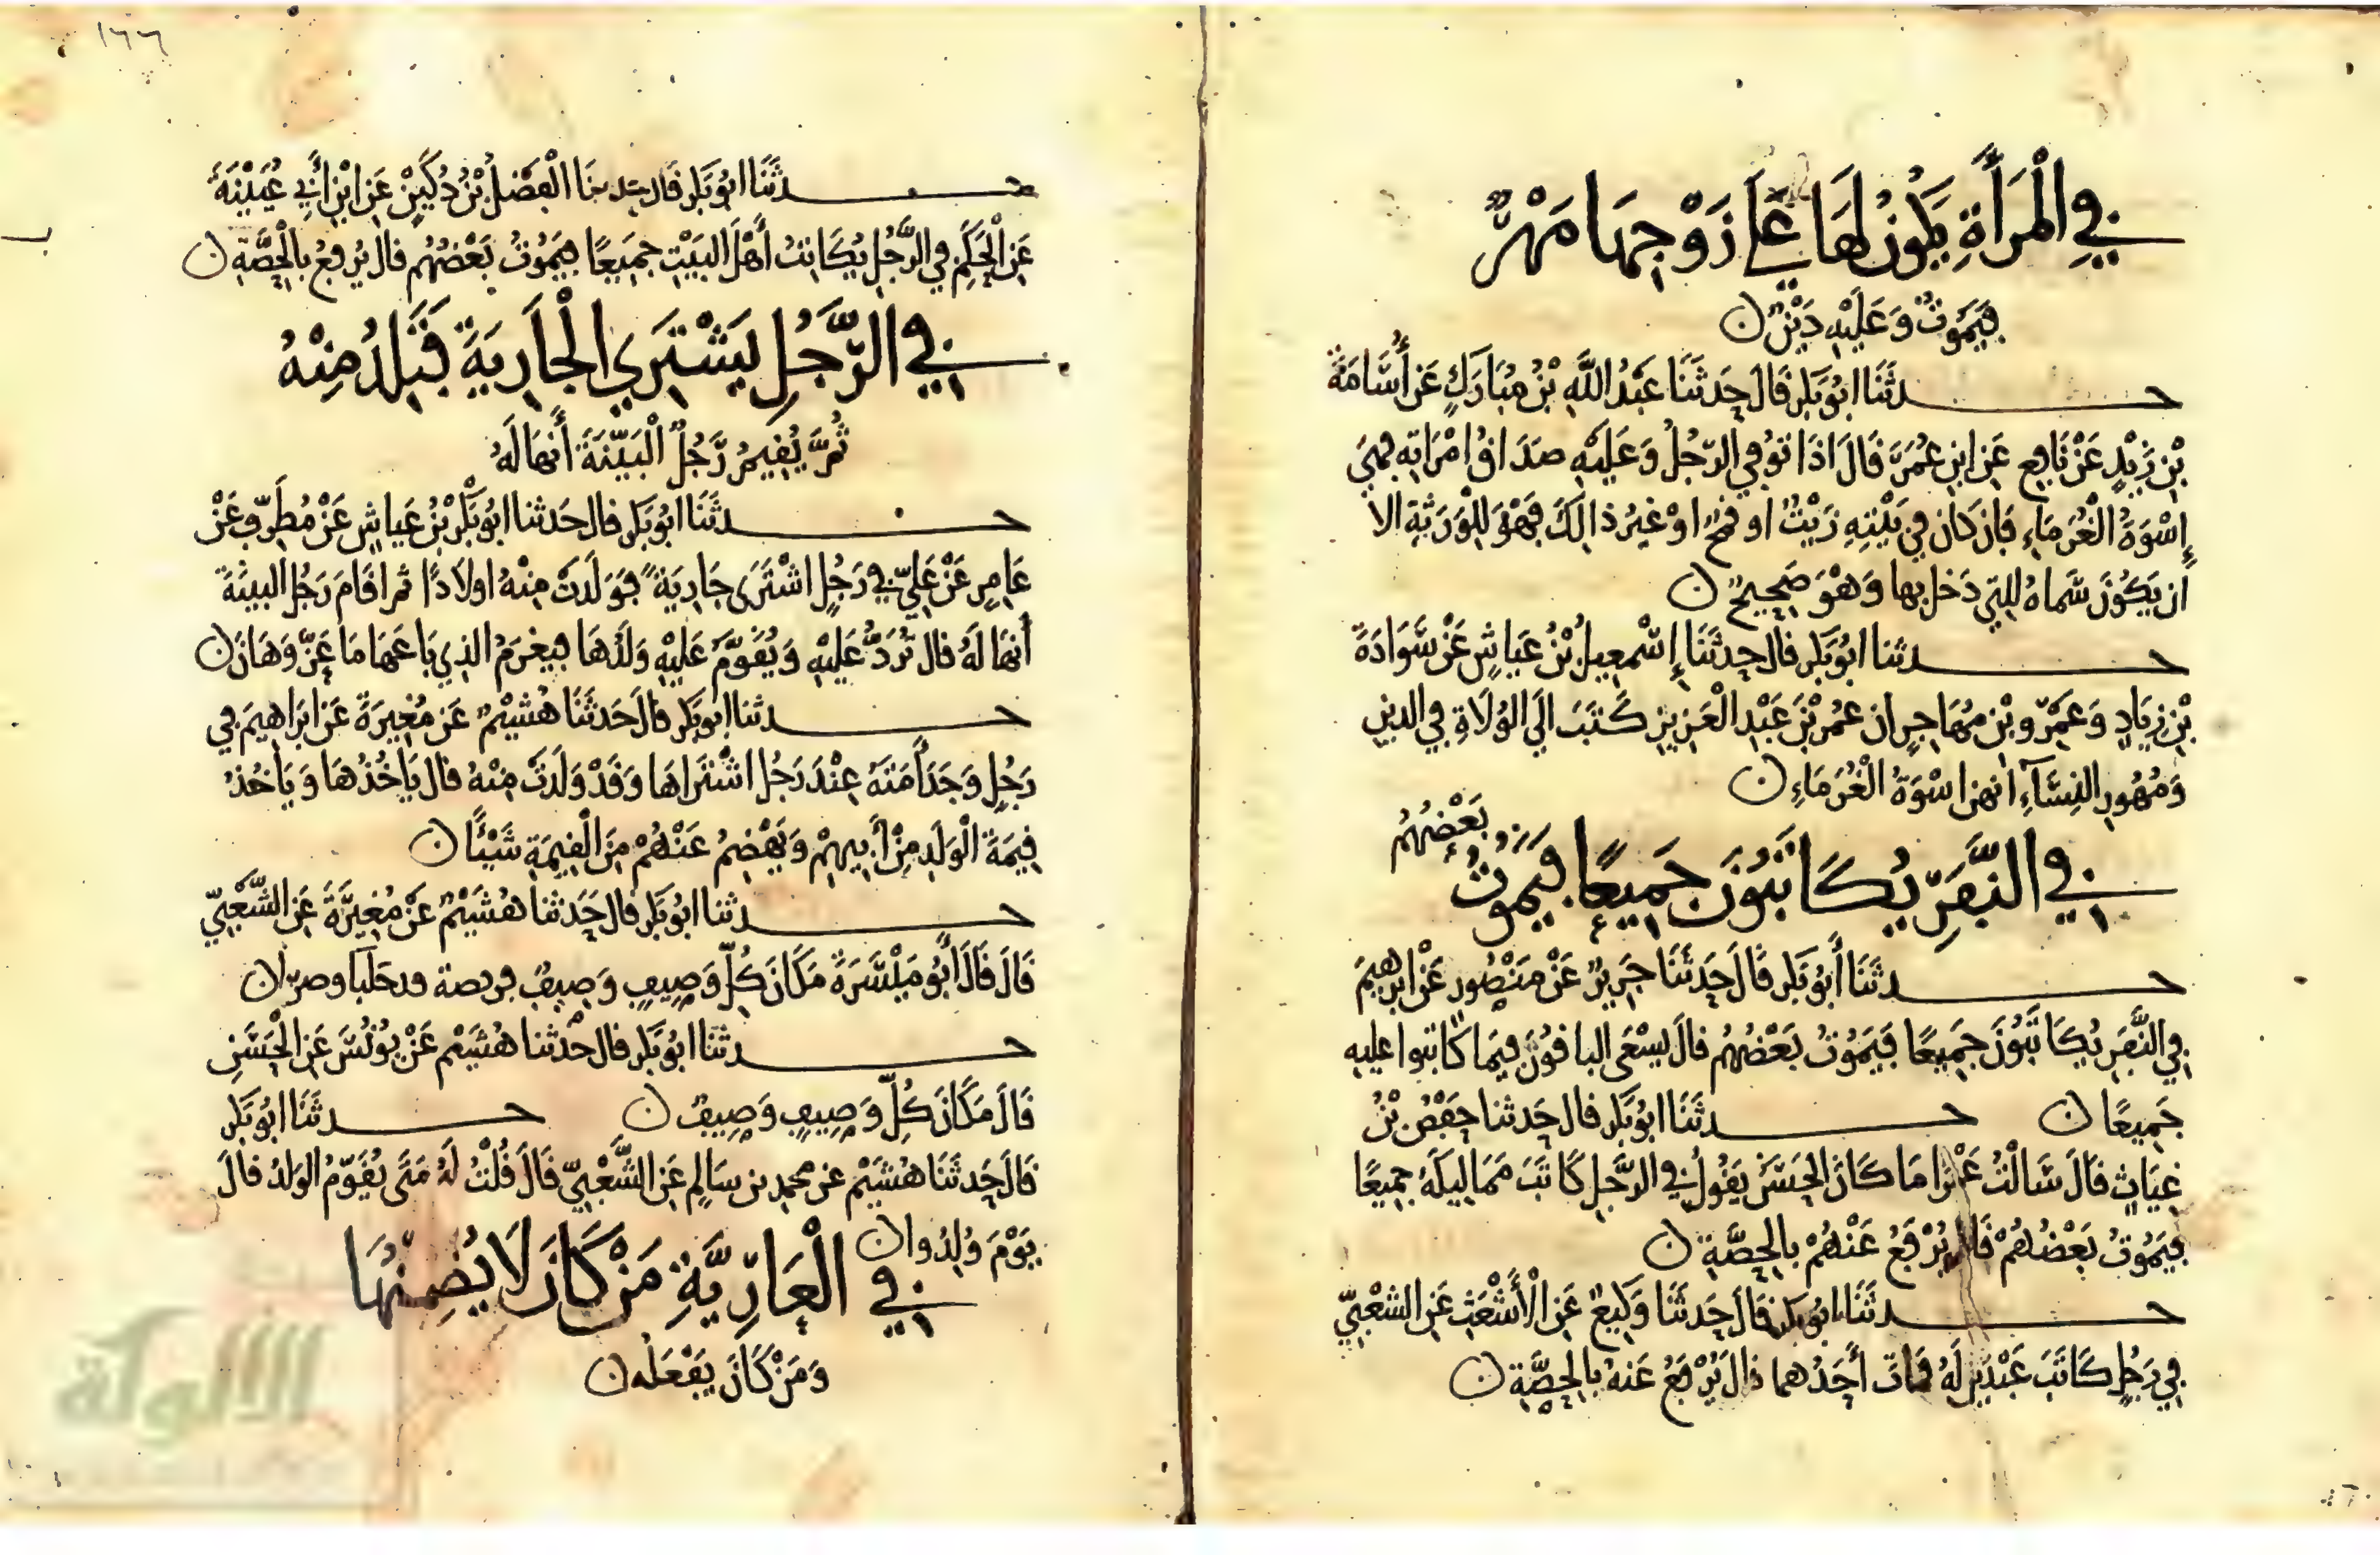 في الْمَرْأَةِ يَكُونُ لَهَا عَلَى زَوْجِهَا مَهْرٌ
فَيَمُوتُ وَعَلَيْهِ دَيْنٌ
حدثَنَا ابُو بَكر قَالَ حَدثَنَا عَبْدُ اللَّهِ بْنُ مُبَارَكٍ عَن أُسَامَةَ
بْنِ زَيْدٍ عَنْ نَافِعٍ عَن ابنِ عُمَرَ قَالَ اذَا تُوُفيَ الرّجُلُ وَعَلَيْهِ صَدَاقُ امْرَاتِهِ فَهِيَ
إِسْوَةُ الْغُرَمَاءِ فَان كَانَ فِي بَيْتِهِ زَيْتٌ او قمحٌ اوْ غَيْرُ ذالِكَ فَهْوَ لِلْوَرَثَةِ الا
ان يَكُونَ سَمَاهُ لِلتِي دَخَلَ بها وَهْوَ صَحِيحٌ
حدثنا ابُو بَكر قال حَدثَنَا إِسْمعِيلُ بْنُ عَياشٍ عَنْ سَوَادَةَ
بْنِ زِيَادٍ وَعَمْرو بْنِ مُهَاجِرٍ ان عُمَرَ بْنَ عَبْدِ الْعَزِيزِ كَتَبَ الَى الوُلَاةِ فِي الدينِ
وَمُهُورِ النِسَاءِ انهن اسْوَةُ الْغُرَمَاءِ
في النَّفَرِ يُكَاتَبُونَ جَمِيعًا فيَمُوتُ بَعْضُهُم
حدثَنَا أَبُو بَكر قَالَ حَدثَنَا جَرِيرٌ عَنْ مَنْصُورٍ عَنْ ابرهِيمَ
فِي النَّفَرِ يُكَاتَبُونَ جَمِيعًا فَيَمُوتُ بَعْضُهُم قالَ يسْعَى الباقُونَ فِيمَا كَاتبوا عليهِ
جَمِيعًا حدثَنَا ابُو بَكر قال حَدثنا حَفْصُ بْنُ
غِيَاثٍ قَالَ سَالْتُ عَمْرًا مَا كَانَ الحَسَنُ يَقُولُ فِي الرَّجُلِ كَاتَبَ مَمَالِيكَهُ جَمِيعًا
فيَمُوتُ بَعْضُهُمْ قَالَ يُرْفَعُ عَنْهُمْ بِالحِصَّةِ
حدثَنَا ابُو بكر قَالَ حَدثَنَا وَكِيعٌ عَن الْأَشْعَثِ عَن الشعْبِيِّ
فِي رَجُلٍ كَاتَبَ عَبْدَيْنِ لَهُ فماتَ أَحَدُهما قال يُرْفَعُ عَنهُ بِالحِصَّةِ
١٦٦
حدثَنَا ابُو بَكر قال حدثنَا الْفَضْلُ بْنُ دُكَيْنٍ عَن ابْنِ أَبِي عُيَيْنَةَ
عَن الْحَكَمِ فِي الرَّجُلِ يُكَاتِبُ أَهْلَ البَيْتِ جَمِيعًا فيَمُوتُ بَعْضُهُم قال يُرْفعُ بالْحِصَّةِ
في الرَّجُلِ يَشْتَرِي الْجَارِيَةَ فَتَلِدُ مِنْهُ
ثُمَّ يُقِيمُ رَجُلٌ الْبَيِّنَةَ أَنهَا لَهُ
حدثَنَا ابُو بَكر قال حَدثنا ابُو بَكْر بْنُ عَياشٍ عَنْ مُطَرِّفٍ عَنْ
عَامِرٍ عَنْ عَلِيٍّ فِي رَجُلٍ اشْتَرَى جَارِيَةً فوَلَدَتْ مِنْهُ اولَادًا ثم اقَامَ رَجُل البيِنَةَ
أَنهَا لَهُ قال تُرَدُّ عَلَيْهِ وَيُقَوَّمُ عَلَيْهِ وَلَدُهَا فيغرَمُ الذِي بَاعَهَا مَا عَزَّ وَهَانَ
حدثنا ابو بَكر قالَ حَدثَنَا هُشيْمٌ عَن مُغِيرَةَ عَن ابرَاهيمَ فِي
رَجُلٍ وَجَدَ أَمَتَهُ عِنْدَ رَجُل اشْتَرَاهَا وَقَدْ وَلَدَتْ مِنْهُ قال يَاخُذُهَا وَيَأْخُذُ
قِيمَةَ الْوَلَدِ مِنْ أَبِيهِمْ وَيَهْضِمُ عَنْهُمْ مِنَ الْقِيمَةِ شَيْئًا
حدثنا ابُو بَكر قال حَدثنا هُشَيْمٌ عَنْ مُغِيرَةَ عَن الشَّعْبِيِّ
قَالَ قَالَ أَبُو مَيْسَرَةَ مَكَانَ كُلِّ وَصِيفٍ وَصِيفٌ
حدثَنَا ابُو بَكر قال حَدثنا هُشَيْم عَنْ يُونُسَ عَن الْحَسَنِ
قَالَ مَكَانَ كُلِّ وَصِيفٍ وَصِيفٌ حدثَنَا ابُو بَكر
قَالَ حَدثَنَا هُشَيْم عن محمدِ بن سَالِمٍ عَن الشَّعْبِيِّ قَالَ قُلْتُ لَهُ مَتَى يُقَوَّمُ الوَلَدُ قالَ
يَوْمَ وُلِدُوا
في الْعَارِيَّةِ مَنْ كَانَ لَا يُضَمِّنُهَا
وَمَنْ كَانَ يَفْعَلُه
الألوكة